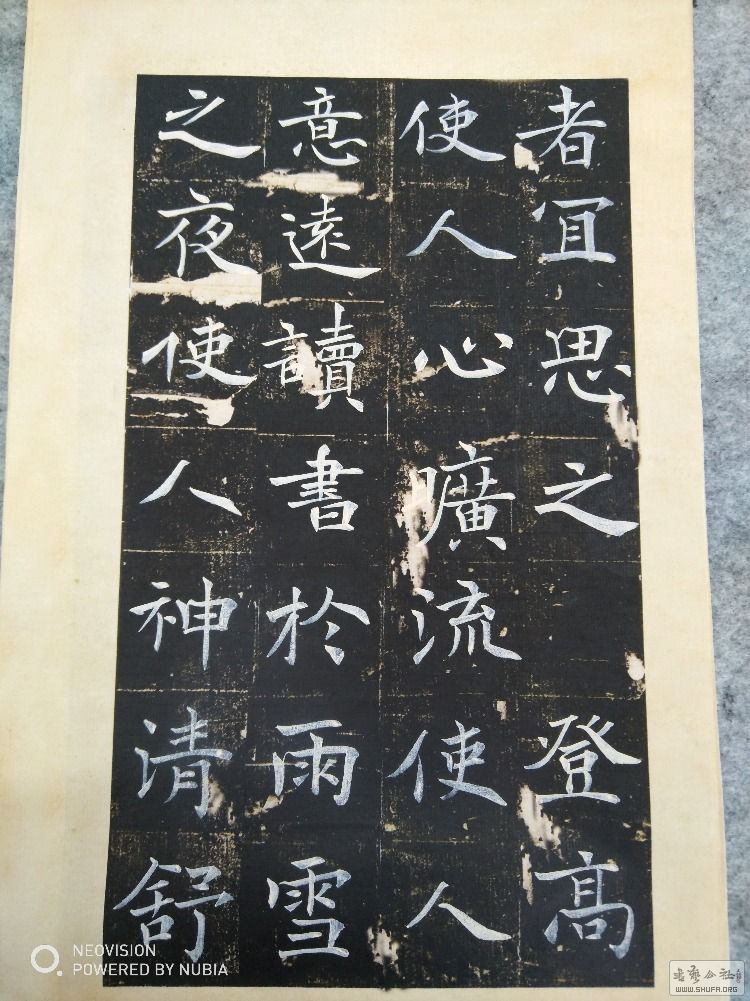 者宜思之登高
使人心曠流使人
意遠讀書於雨雪
之夜使人神清舒
NEOVISION
POWERED BY NUBIA
WWW.SHUFA.ORG